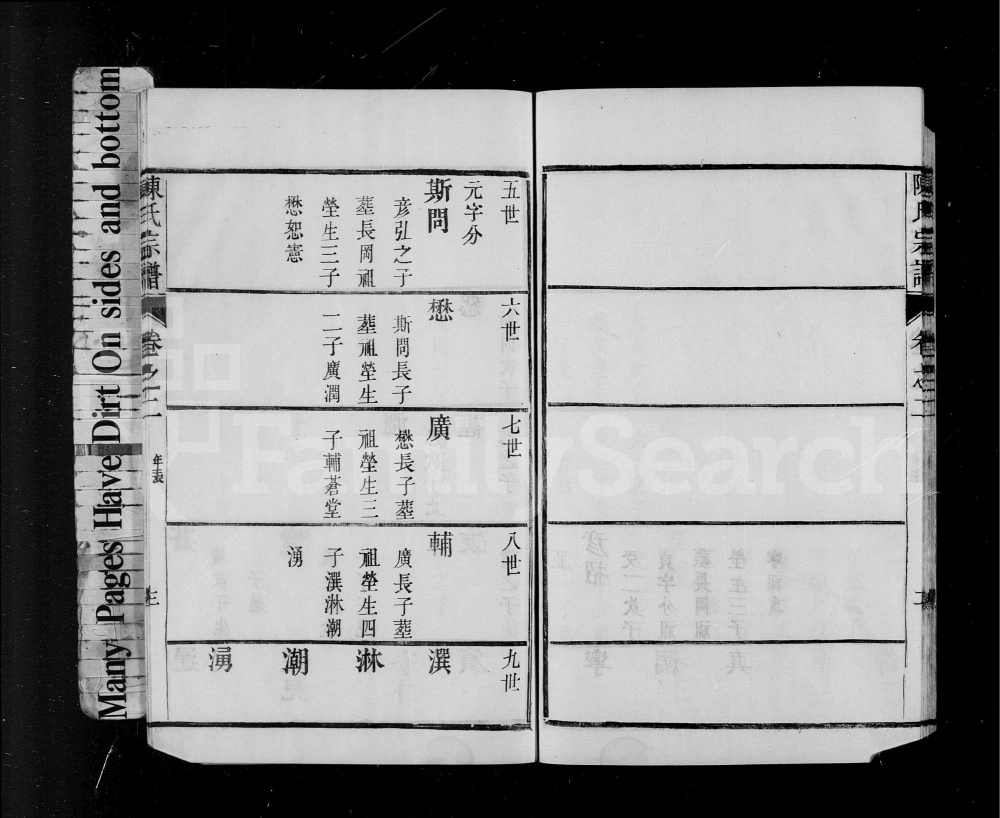 Many Pages Have Dirt On sides and bottom
陳氏宗譜
卷之二
五世
元字分
斯問
彥弘之子
塟長岡祖
塋生三子
懋恕憲
六世
懋
斯問長子
塟祖塋生
二子廣潤
七世
廣
懋長子塟
祖塋生三
子輔蒼堂
八世
輔
廣長子塟
祖塋生四
子潩淋潮
湧
九世
潩
淋
潮
湧
陳氏宗譜
卷之二
年表
三
FamilySearch